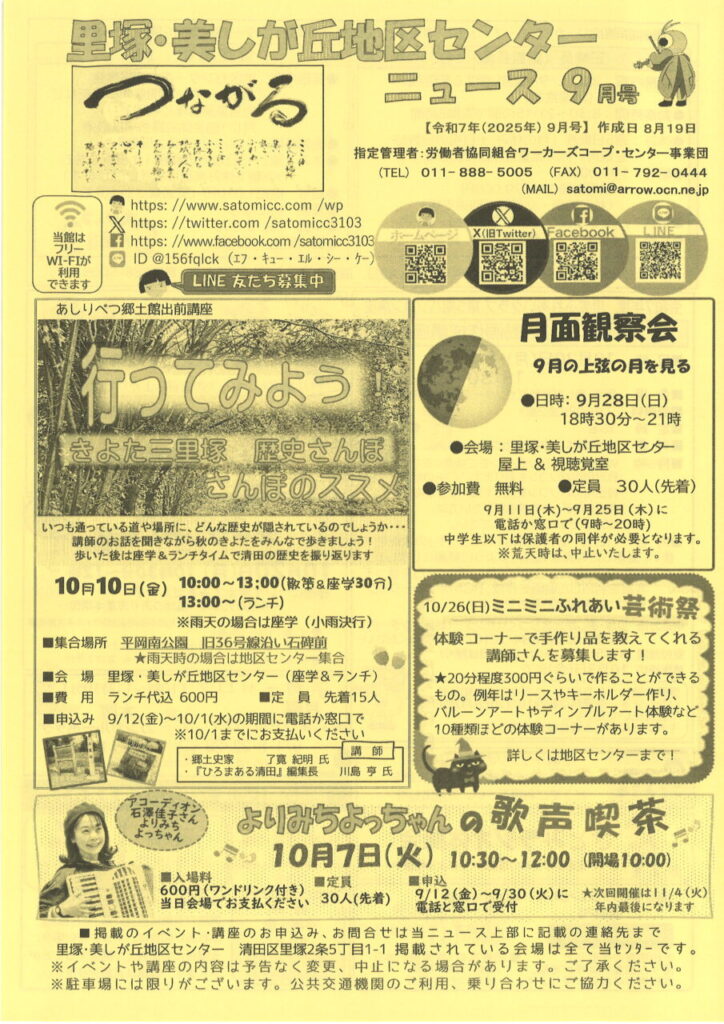 里塚・美しが丘地区センター
ニュース 9月号
つながる
【令和7年(2025年) 9月号】 作成日 8月19日
指定管理者：労働者協同組合ワーカーズコープ・センター事業団
(TEL) 011-888-5005 (FAX) 011-792-0444
(MAIL) satomi@arrow.ocn.ne.jp
当館は
フリー
WI-FIが
利用
できます
https: //www.satomicc.com /wp
https: //twitter.com /satomicc3103
https: //www.facebook.com /satomicc3103
ID @156fqlck (エフ・キュー・エル・シー・ケー)
LINE 友だち募集中
ホームページ
X(旧Twitter)
Facebook
LINE
あしりべつ郷土館出前講座
行ってみよう！
きよた三里塚 歴史さんぽ
さんぽのススメ
いつも通っている道や場所に、どんな歴史が隠されているのでしょうか・・・
講師のお話を聞きながら秋のきよたをみんなで歩きましょう！
歩いた後は座学&ランチタイムで清田の歴史を振り返ります
10月10日(金) 10:00～13:00(散策&座学30分)
13:00～(ランチ)
※雨天の場合は座学（小雨決行）
■集合場所 平岡南公園 旧36号線沿い石碑前
★雨天時の場合は地区センター集合
■会 場 里塚・美しが丘地区センター（座学&ランチ）
■費 用 ランチ代込 600円 ■定 員 先着15人
■申込み 9/12(金)～10/1(水)の期間に電話か窓口で
※10/1までにお支払いください
講 師
・郷土史家 了寛 紀明 氏
・『ひろまある清田』編集長 川島 亨 氏
月面観察会
9月の上弦の月を見る
●日時：9月28日(日)
18時30分～21時
●会場：里塚・美しが丘地区センター
屋上 & 視聴覚室
●参加費 無料 ●定員 30人(先着)
9月11日(木)～9月25日(木)に
電話か窓口で(9時～20時)
中学生以下は保護者の同伴が必要となります。
※荒天時は、中止いたします。
10/26(日) ミニミニふれあい芸術祭
体験コーナーで手作り品を教えてくれる
講師さんを募集します！
★20分程度300円ぐらいで作ることができる
もの。例年はリースやキーホルダー作り、
バルーンアートやディンプルアート体験など
10種類ほどの体験コーナーがあります。
詳しくは地区センターまで！
アコーディオン
石澤佳子さん
よりみち
よっちゃん
よりみちよっちゃんの歌声喫茶
10月7日(火) 10:30～12:00 (開場10:00)
■入場料
600円(ワンドリンク付き)
当日会場でお支払ください
■定員
30人(先着)
■申込
9/12(金)～9/30(火)に
電話と窓口で受付
★次回開催は11/4(火)
年内最後になります
■掲載のイベント・講座のお申込み、お問合せは当ニュース上部に記載の連絡先まで
里塚・美しが丘地区センター 清田区里塚2条5丁目1-1 掲載されている会場は全て当センターです。
※イベントや講座の内容は予告なく変更、中止になる場合があります。ご了承ください。
※駐車場には限りがございます。公共交通機関のご利用、乗り合わせにご協力ください。